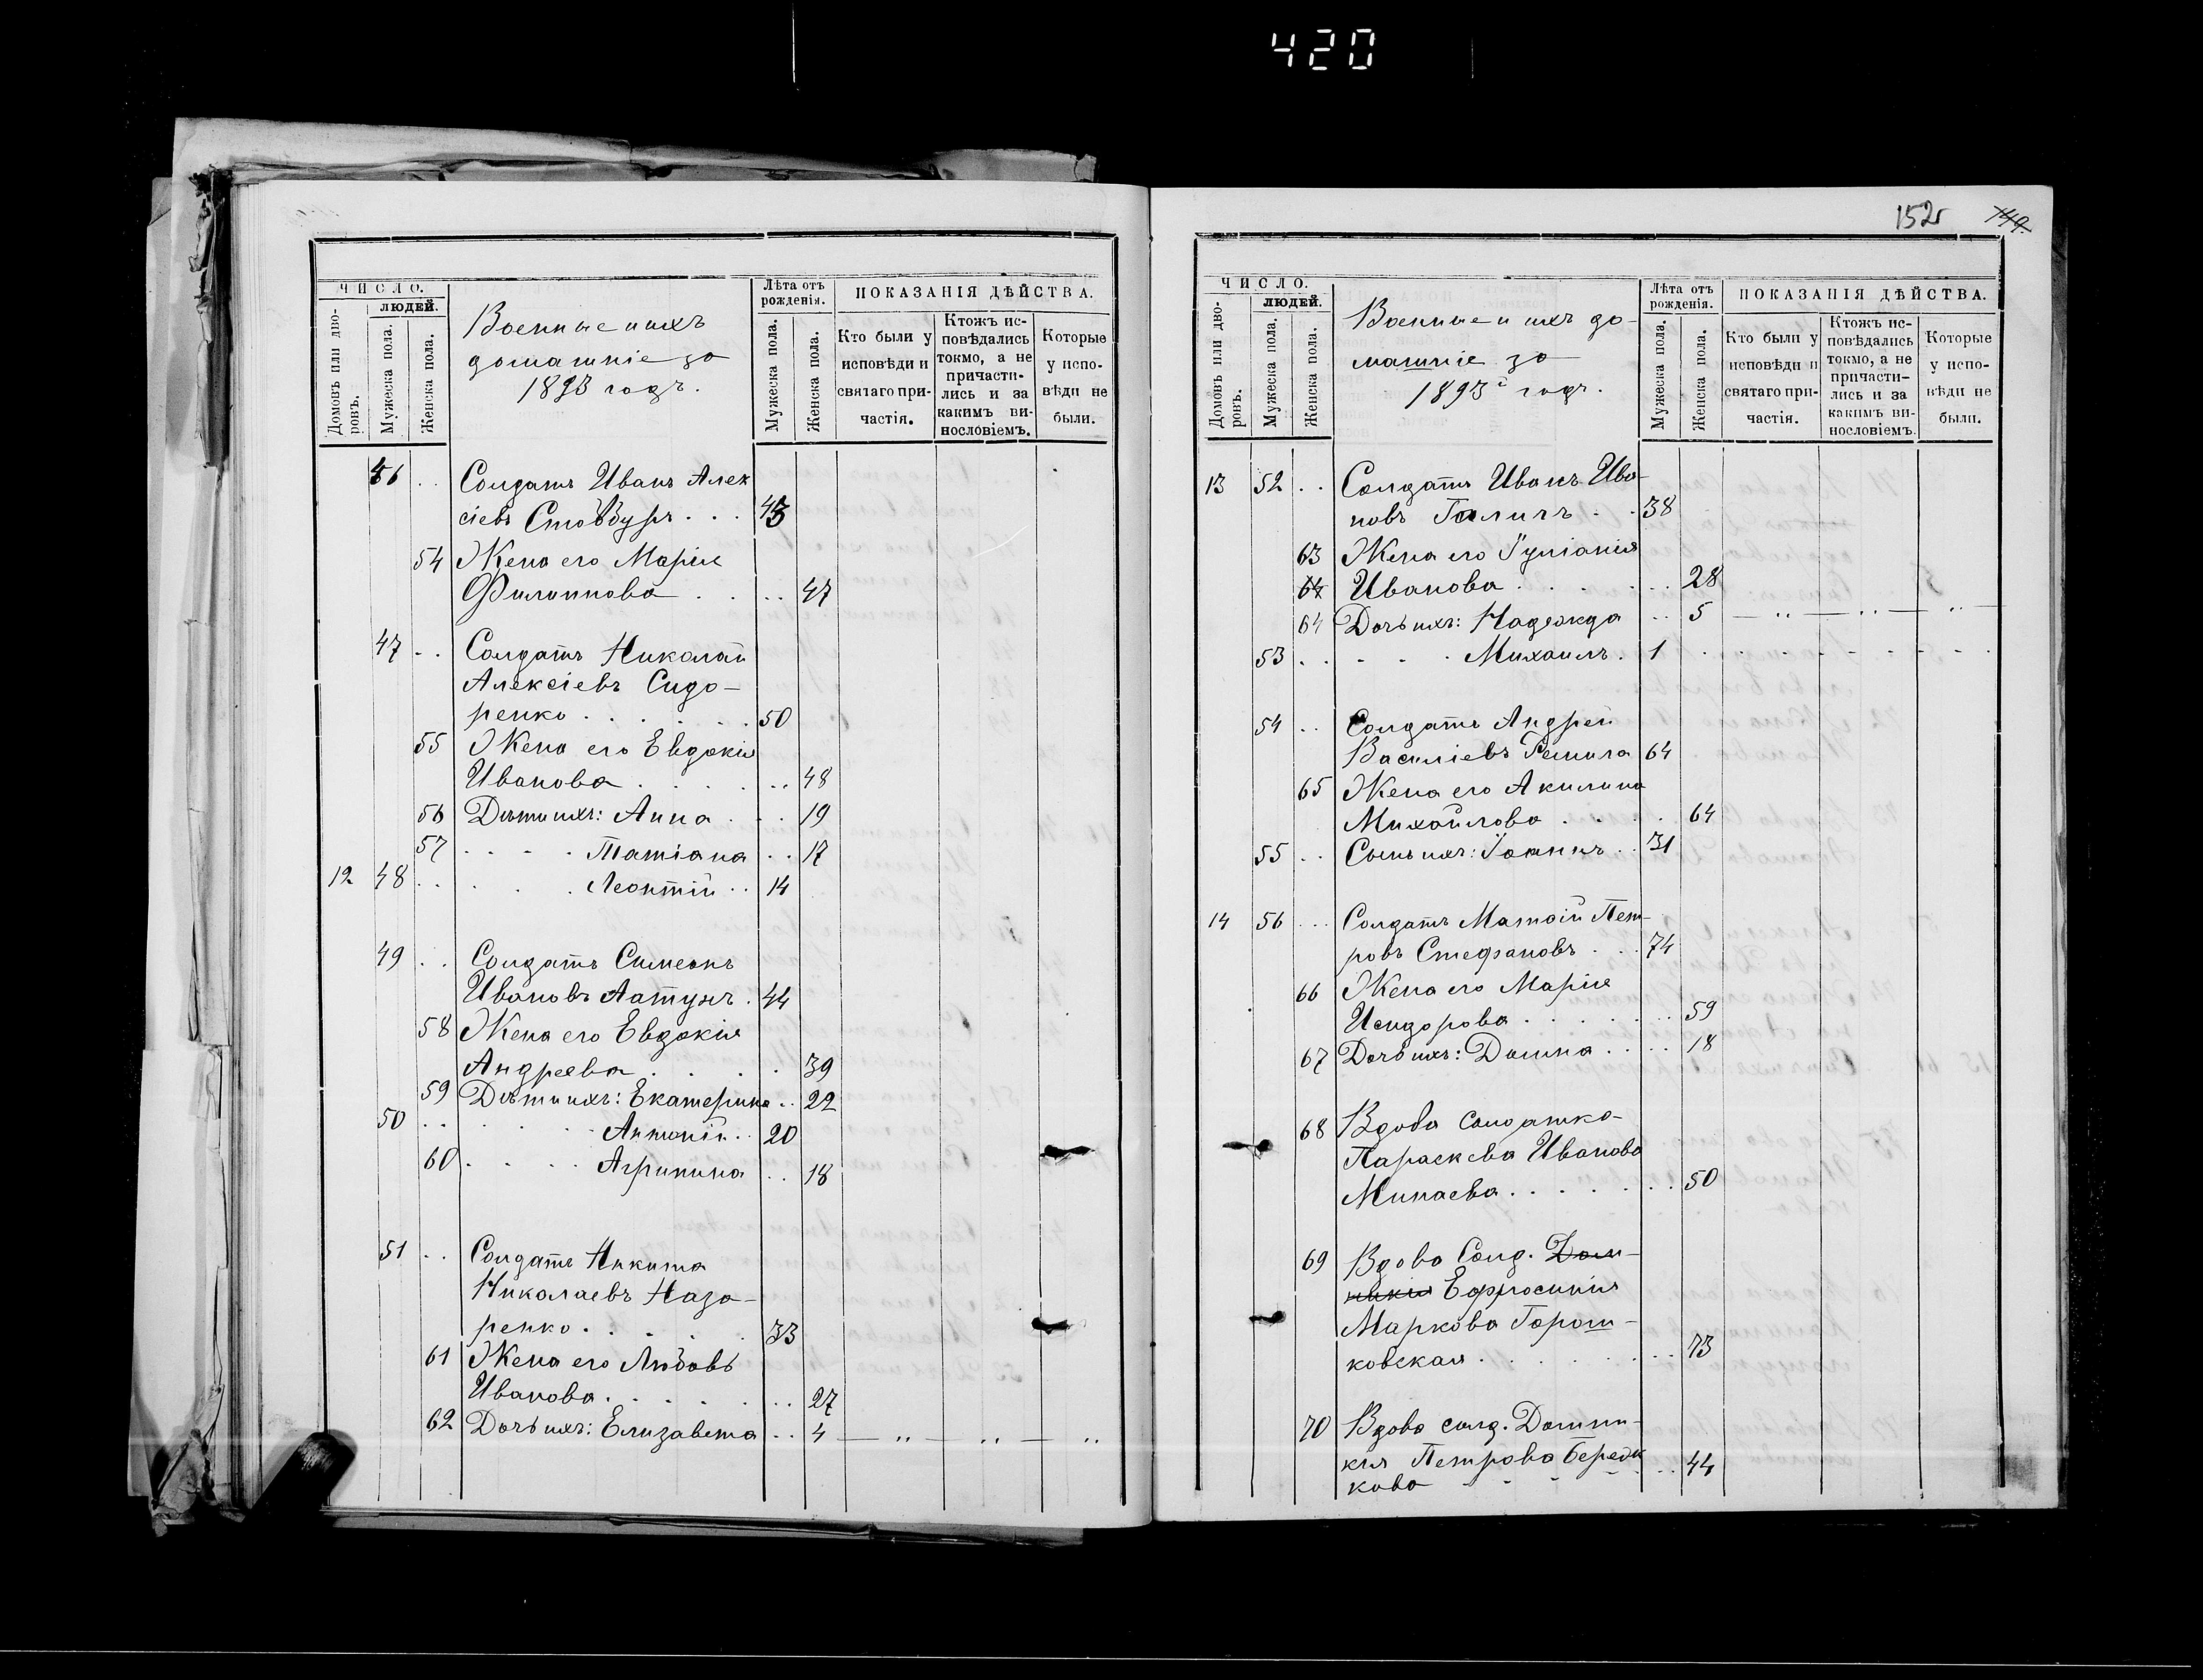 420
ЧИСЛО.
ЛЮДЕЙ.
Домовъ или дворовъ.
Мужеска пола.
Женска пола.
Военные и ихъ
домашніе за
1893 годъ.
Лѣта отъ
рожденія.
Мужеска пола.
Женска пола.
ПОКАЗАНІЯ ДѢЙСТВА.
Кто были у
исповѣди и
святаго при-
частія.
Ктожъ ис-
повѣдались
токмо, а не
причасти-
лись и за
какимъ ви-
нословіемъ.
Которые
у испо-
вѣди не
были.
46 . . Солдатъ Иванъ Алек
сіевъ . . . 43
54 Жена его Марія
Филиппова . . . . 47
47 . . Солдатъ Николай
Алексіевъ Сидо-
ренко . . . . . . 50
55 Жена его Евдокія
Иванова . . . . . . 48
56 Дѣти ихъ: Анна . . . 19
57 . . . . Татіана . . 17
12 48 . . . . . Леонтій . . 14
49 . . Солдатъ Симеонъ
Ивановъ . 44
58 Жена его Евдокія
Андреева . . . . 39
59 Дѣти ихъ: Екатерина . . 22
50 . . . . . . Антоній . . 20
60 . . . . Агрипина . . 18
51 . . Солдатъ Никита
Николаевъ Наза-
ренко . . . . . 33
61 Жена его Любовь
Иванова . . . . . . 27
62 Дочь ихъ: Елизавета . . 4 — „ — „ — „
152 149.
ЧИСЛО.
ЛЮДЕЙ.
Домовъ или дворовъ.
Мужеска пола.
Женска пола.
Военные и ихъ до-
машніе за
1893й годъ.
Лѣта отъ
рожденія.
Мужеска пола.
Женска пола.
ПОКАЗАНІЯ ДѢЙСТВА.
Кто были у
исповѣди и
святаго при-
частія.
Ктожъ ис-
повѣдались
токмо, а не
причасти-
лись и за
какимъ ви-
нословіемъ.
Которые
у испо-
вѣди не
были.
13 52 . . Солдатъ Иванъ Ива-
новъ Галичъ . . 38
63 Жена его Іуліанія
64 Иванова . . . . . . 28
64 Дочь ихъ: Надежда . . 5 — „ — „ — „ —
53 . . . . . Михаилъ . 1 . . . . . . . .
54 . . Солдатъ Андрей
Василіевъ 64
65 Жена его Акилина
Михайлова . . . . 64
55 . . Сынъ ихъ: Іоаннъ . . 31
14 56 . . . Солдатъ Матѳій Пет-
ровъ Стефановъ . . . 74
66 Жена его Марія
Исидорова . . . . . . 59
67 Дочь ихъ: Домна . . . . 18
68 Вдова солдатка-
Параскева Иванова
Минаева . . . . . . . 50
69 Вдова Солд. Дом-
никія Ефросинія
Маркова Горош-
ковская . . . . . . . 73
70 Вдова солд. Домни-
кія Петрова
кова . . . . . . 44